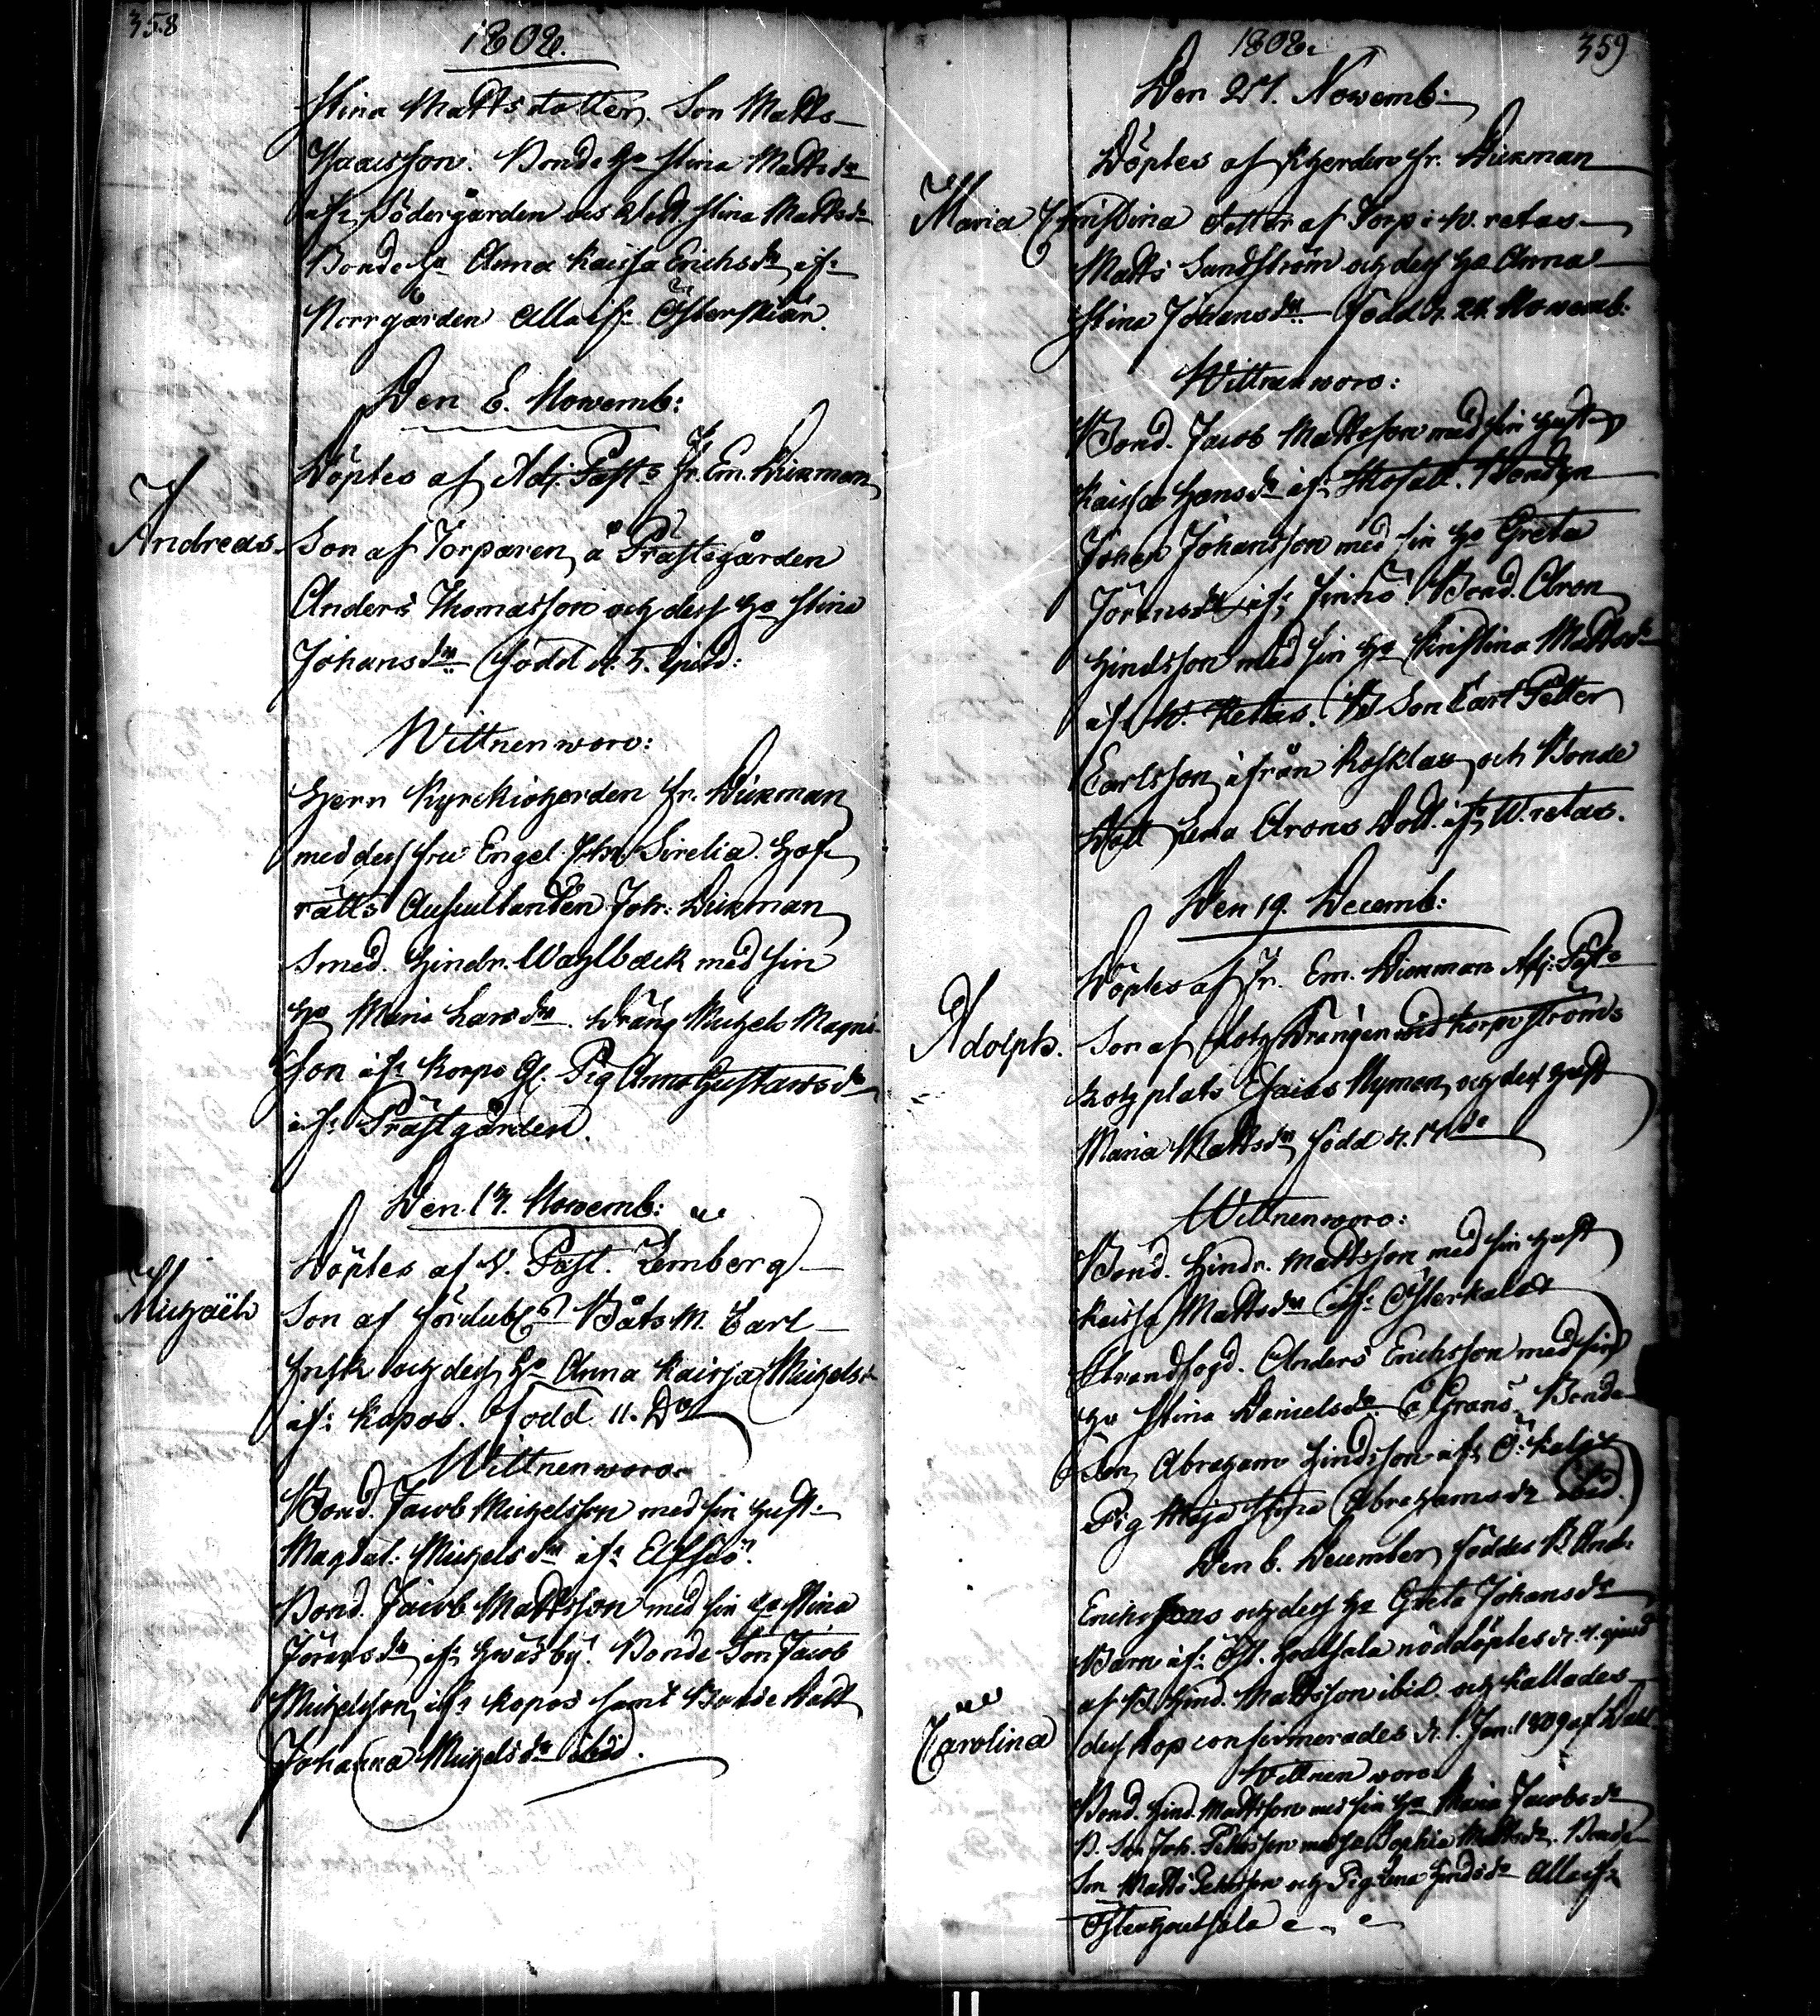 358
1808.
Stina Mattsdotter. Son Matts
Isaacsson. Bonde Ho Stina Mattsdr
ifr. Södergården och Dott. Stina Mattsdr
Bonde Ho Anna Kaisa Erichsdr ifr.
Norrgården Alla ifr. Österskiär.
Den 6. Novemb:
Döptes af Adj. Past: Jr. Em. Wikman
Andreas. Son af Torparen å Prästegården
Anders Thomasson och dess Ho Stina
Johansdr. född d. 5. ejusd:
Wittnen woro:
Herr Kyrckioherden Jr. Wikman
med dess fru Engel. Sirelia. Hof-
rätts Auscultanten Joh: Wikman
Smed. Hindr. Wahlbäck med sin
Ho Maria Larsdr. Dräng Michels Magni
Son ifr. Korpo Pig Anna Gustavsdr
ifr. Prästgården.
Den 13. Novemb:
Döptes af V. Past. Lemberg
Michaël Son af Båtsm. Carl
Frisk och dess Ho Anna Kaisa Michelsd
ifr. Kopos. född 11. Do
Wittnen woro.
Bond. Jacob Michelsson med sin hust.
Magdal: Michelsdr ifr. Elfsiö.
Bond. Jacob Mattsson med sin Ho Stina
Jöransdr ifr. Hwäsby. Bonde Son Jacob
Michelsson ifr. Kopos samt Bonde Dott
Johanna Michelsdr ibid.
359
1808.
Den 27. Novemb:
Döptes af Kherden Jr. Wikman
Maria Christina dotter af Torp. i W. retas
Matts Sandström och dess Ho Anna
Stina Johansdr. född d. 24. Novemb:
Wittnen woro:
Bond. Jacob Mattsson med sin hust
Kaisa Hansdr ifr. Bonden
Johan Johansson med sin Ho Greta
Jöransdr ifr. Finnö. Bond. Aron
Hindsson med sin Ho Christina Mattsdr
ifr. W. Rettas. Bd Son Carl Petter
Carlsson ifrån Rosklax och Bonde
Dott Lena Arons Dott. ifr. W. retas.
Den 19. Decemb:
Döptes af Jr. Em. Wikman Adj: Past:
Adolph. Son af Lots Drängen wid Korpoströms
Lotsplats Esaias Nyman och dess hust
Maria Mattsdr född d. 17de
Wittnen woro:
Bond. Hindr. Mattsson med sin hust
Kaisa Mattsdr ifr. Österkalax
Strandfogd. Anders Erichsson med sin
Ho Stina Danielsdr Bonde
Son Abraham Hindsson ifr. Ö. kalax
Pig Maja Stina Abrahamsdr ibid.
Den 6. December föddes B. And:
Erichssons och dess Ho Greta Johansdr
Barn ifr. nöddöptes d. ejusd
af B. Hind. Mattsson ibid. och kallades
Carolina dess Dop confirmerades d. 1. Jan. 1809 af
Wittnen woro
Bond. Hind. Mattsson med sin Ho Maria Jacobsdr
B. Son Joh. med Ho Sophia Mattsdr. Bonde
Son Matts och Pig Lena Hindsdr Alla ifr.